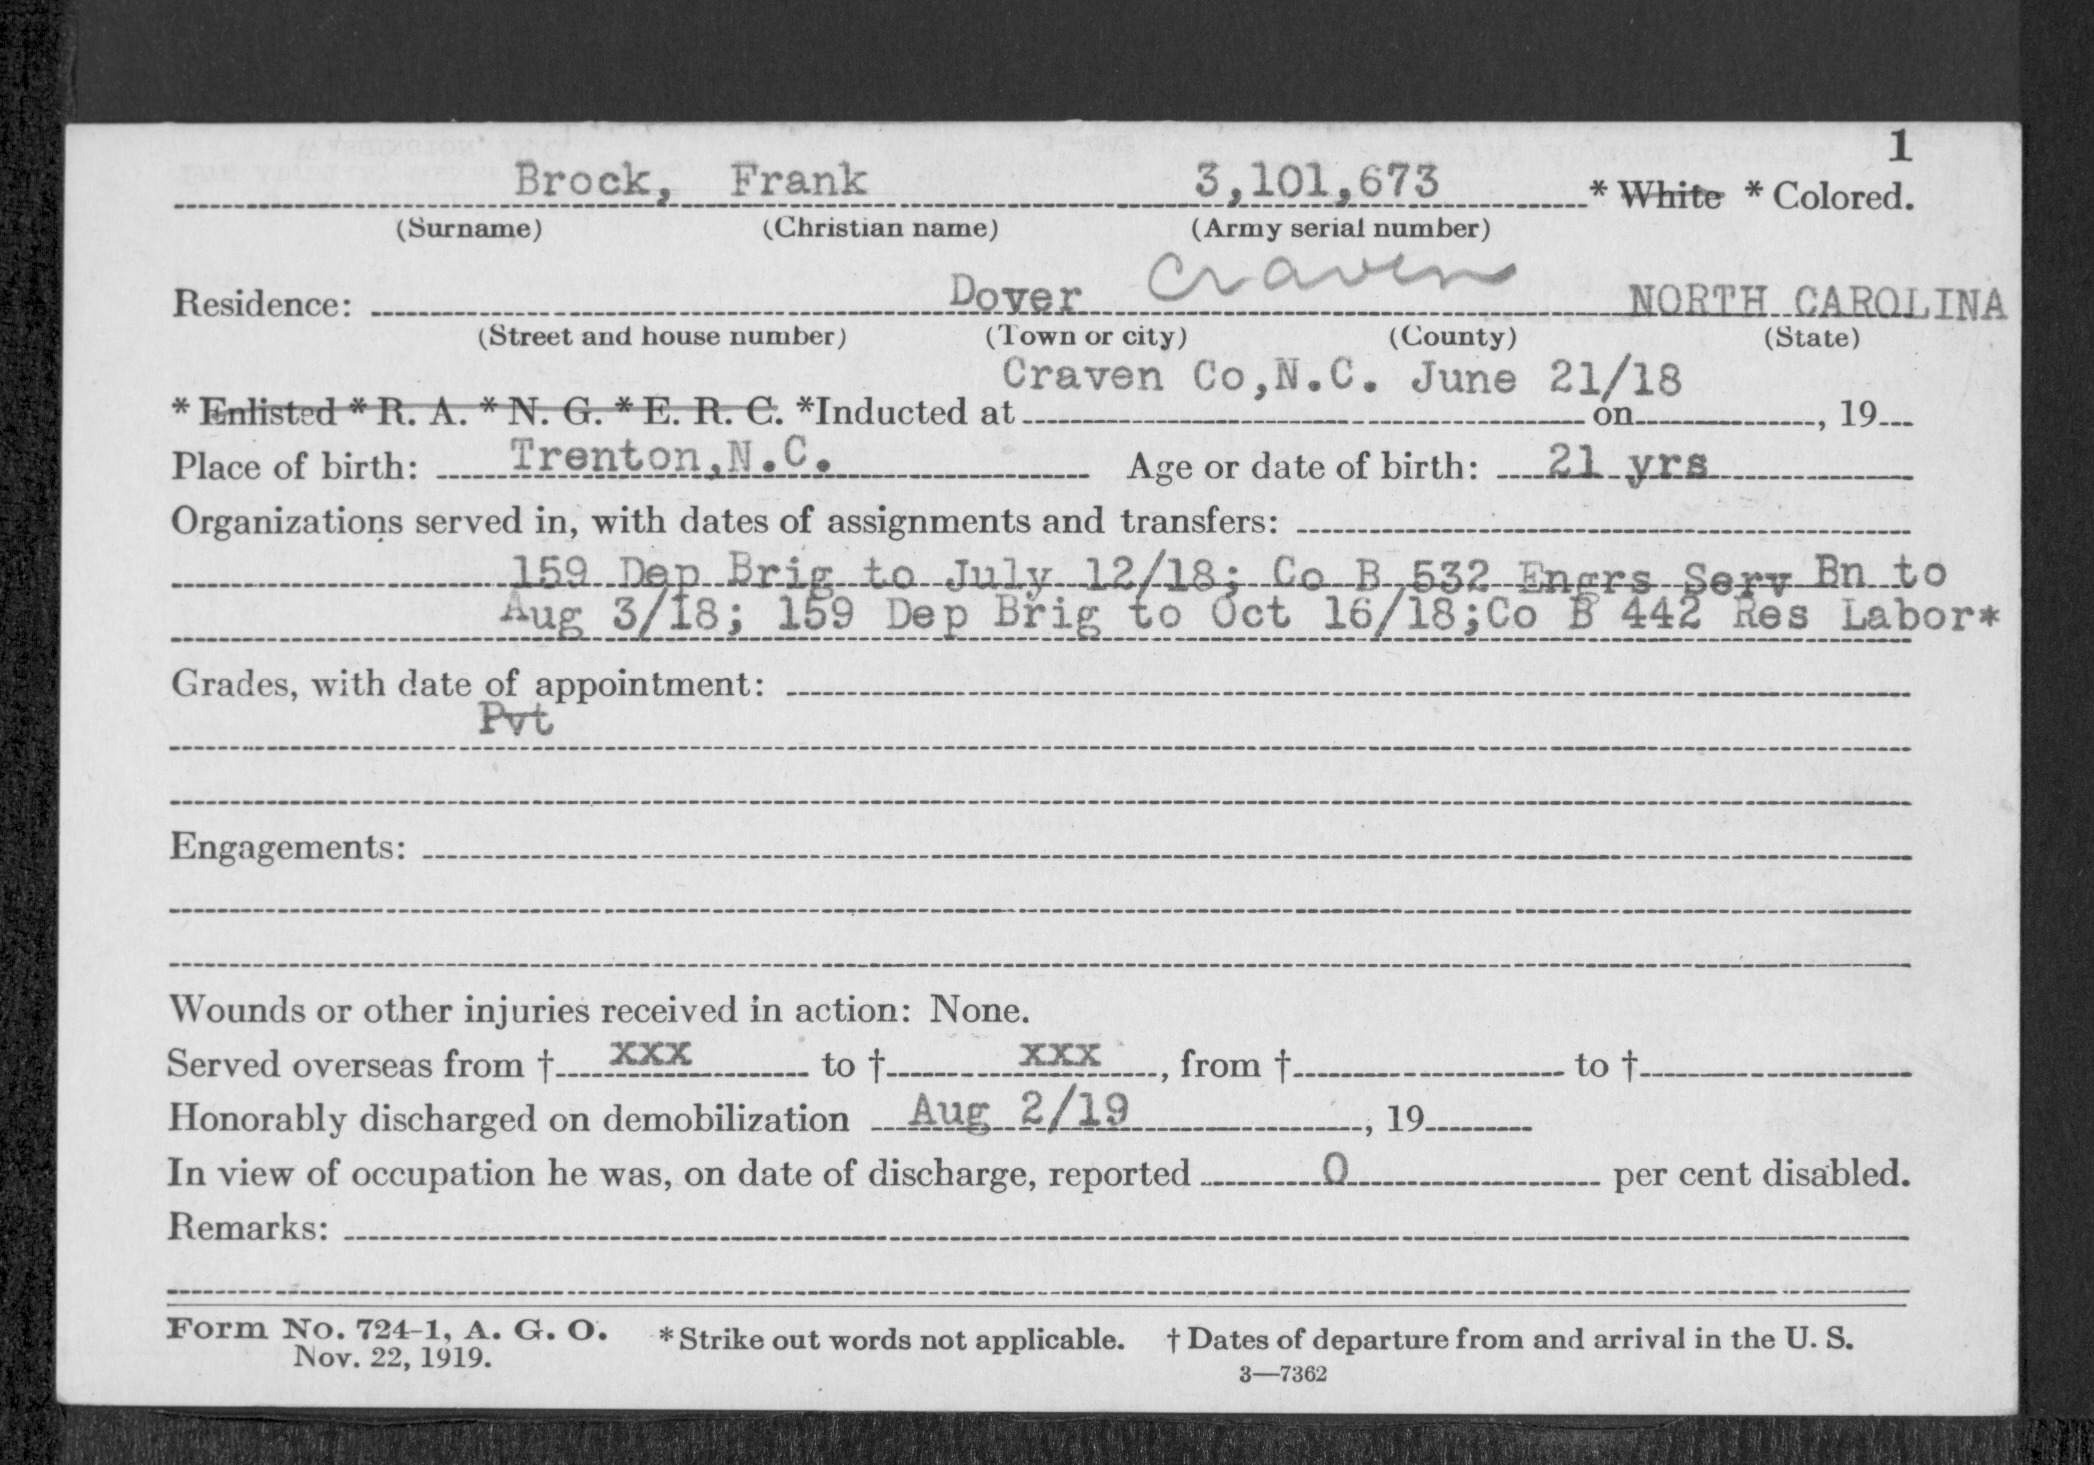 1
Brock, Frank 3,101,673 * White * Colored.
(Surname) (Christian name) (Army serial number)
Residence: Dover Craven NORTH CAROLINA
(Street and house number) (Town or city) (County) (State)
Craven Co,N.C. June 21/18
* Enlisted * R. A. * N. G. * E. R. C. *Inducted at on , 19
Place of birth: Trenton,N.C. Age or date of birth: 21 yrs
Organizations served in, with dates of assignments and transfers:
159 Dep Brig to July 12/18; Co B 532 Engrs Serv Bn to
Aug 3/18; 159 Dep Brig to Oct 16/18;Co B 442 Res Labor*
Grades, with date of appointment:
Pvt
Engagements:
Wounds or other injuries received in action: None.
Served overseas from † xxx to † xxx , from † to †
Honorably discharged on demobilization Aug 2/19 , 19
In view of occupation he was, on date of discharge, reported 0 per cent disabled.
Remarks:
Form No. 724-1, A. G. O. * Strike out words not applicable. † Dates of departure from and arrival in the U. S.
Nov. 22, 1919.
3—7362